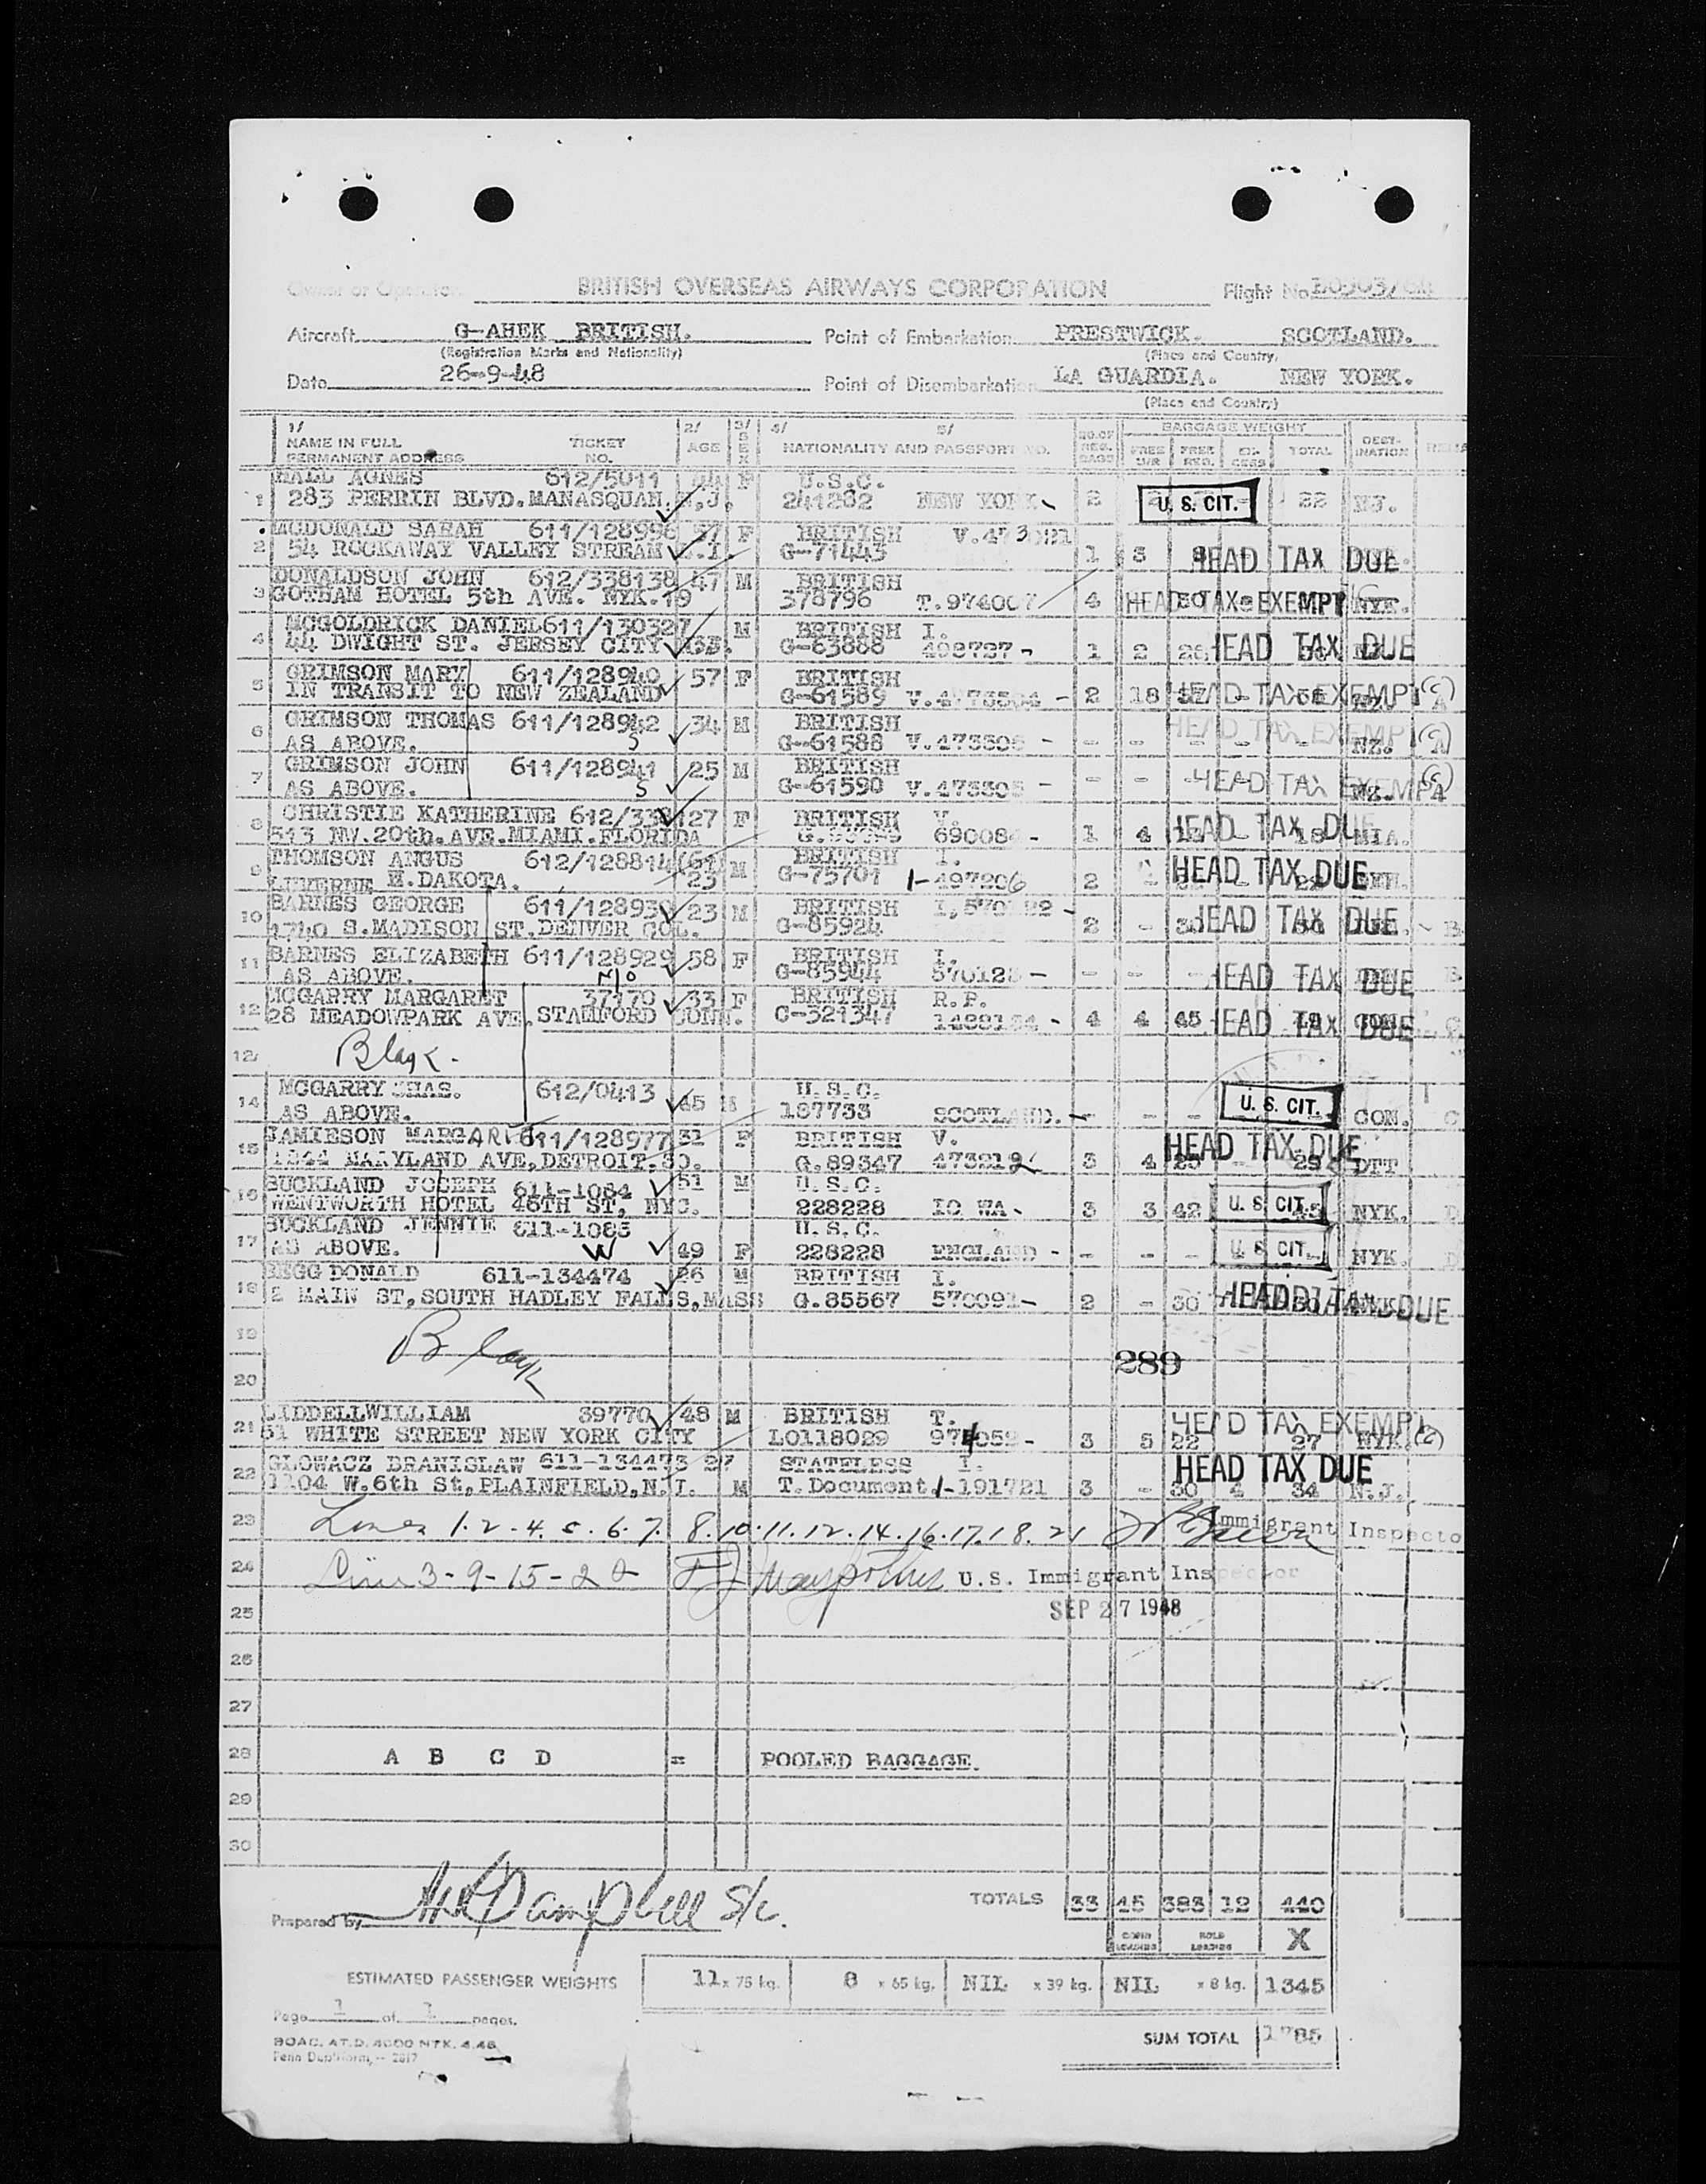 Owner or Operator BRITISH OVERSEAS AIRWAYS CORPORATION Flight No.
Aircraft G-AHEK BRITISH. Point of Embarkation PRESTWICK. SCOTLAND.
(Registration Marks and Nationality) (Place and Country)
Date 26-9-48 Point of Disembarkation LA GUARDIA. NEW YORK.
(Place and Country)
1/ 2/ 3/ 4/ 5/ NO.OF REG. BAGS BAGGAGE WEIGHT
NAME IN FULL TICKET AGE SEX NATIONALITY AND PASSPORT NO. FREE FREE REG. EX- CESS TOTAL DEST- INATION
PERMANENT ADDRESS NO.
HALL AGNES 612/5011 44 F U.S.C.
1 283 PERRIN BLVD. MANASQUAN. N.J. 241282 NEW YORK 2 U. S. CIT. 22 NJ.
MCDONALD SARAH 611/128996 57 F BRITISH V.473021
2 54 ROCKAWAY VALLEY STREAM L.I. G-71443 1 3 HEAD TAX DUE
DONALDSON JOHN 612/338138 47 M BRITISH
3 GOTHAM HOTEL 5th AVE. NYK.19 378796 T.974007 4 HEAD TAX EXEMPT NYK.
MCGOLDRICK DANIEL 611/130327 M BRITISH I.
4 44 DWIGHT ST. JERSEY CITY G-63888 498727 - 1 2 HEAD TAX DUE
GRIMSON MARY 611/128940 57 F BRITISH
5 IN TRANSIT TO NEW ZEALAND G-61589 - 2 18 HEAD TAX EXEMPT
GRIMSON THOMAS 611/128942 34 M BRITISH
6 AS ABOVE. G-61588 - - - HEAD TAX EXEMPT NZ.
GRIMSON JOHN 611/128941 25 M BRITISH
7 AS ABOVE. G-61590 V.473305 - - - HEAD TAX EXEMPT NZ.
CHRISTIE KATHERINE 27 F BRITISH V.
8 513 NW.20th.AVE.MIAMI.FLORIDA 1 4 HEAD TAX DUE MIA.
THOMSON ANGUS 612/128814 M BRITISH I.
9 23 G-75701 2 HEAD TAX DUE
BARNES GEORGE 611/128930 23 M BRITISH
10 1740 S.MADISON ST.DENVER COL. G-85924 2 - HEAD TAX DUE
BARNES ELIZABETH 611/128929 58 F BRITISH I.
11 AS ABOVE. G-85944 - - - HEAD TAX DUE
MCGARRY MARGARET 37170 33 F BRITISH R.P.
12 28 MEADOWPARK AVE. STAMFORD CONN. C-321347 4 4 45 HEAD TAX DUE
12/ Blank -
MCGARRY CHAS. 612/0413 45 M U.S.C.
14 AS ABOVE. 187733 SCOTLAND. - - - U. S. CIT. CON. C
JAMIESON MARGARET 611/128977 31 F BRITISH V.
15 1244 MARYLAND AVE, DETROIT. G.89347 3 4 25 HEAD TAX DUE 29 DTT
BUCKLAND JOSEPH 611-1084 51 M U.S.C.
16 WENTWORTH HOTEL 46TH ST, NYC. 228228 IOWA - 3 3 42 U. S. CIT. 45 NYK. D
BUCKLAND JENNIE 611-1085 U.S.C.
17 AS ABOVE. 49 F 228228 ENGLAND - - - - U. S. CIT. NYK. D
BEGG DONALD 611-134474 26 M BRITISH I.
18 2 MAIN ST, SOUTH HADLEY FALLS, MASS G.85567 570091 - 2 - 30 HEAD TAX DUE
19 Blank
289
20
LIDDELL WILLIAM 39770 48 M BRITISH T.
21 51 WHITE STREET NEW YORK CITY LO118029 - 3 5 22 HEAD TAX EXEMPT 27 NYK.
GLOWACZ BRANISLAW 611-134473 27 STATELESS I.
22 1104 W.6th St, PLAINFIELD, N.J. M T.Document 1-191721 3 - 30 4 HEAD TAX DUE 34 N.J.
23 Lines 1.2.4.5.6.7. 8.10.11.12.14.16.17.18.21 Immigrant Inspector
24 Line 3-9-15-22 U.S. Immigrant Inspector
25 SEP 27 1948
26
27
28 A B C D = POOLED BAGGAGE.
29
30
TOTALS 33 45 383 12 440
Prepared by Campbell S/c.
CABIN LOADING HOLD LOADING X
ESTIMATED PASSENGER WEIGHTS 11 x 75 kg. 8 x 65 kg. NIL x 39 kg. NIL x 8 kg. 1345
Page 1 of 1 pages.
SUM TOTAL 1785
BOAC. AT.D. 4000 NYK. 4.48